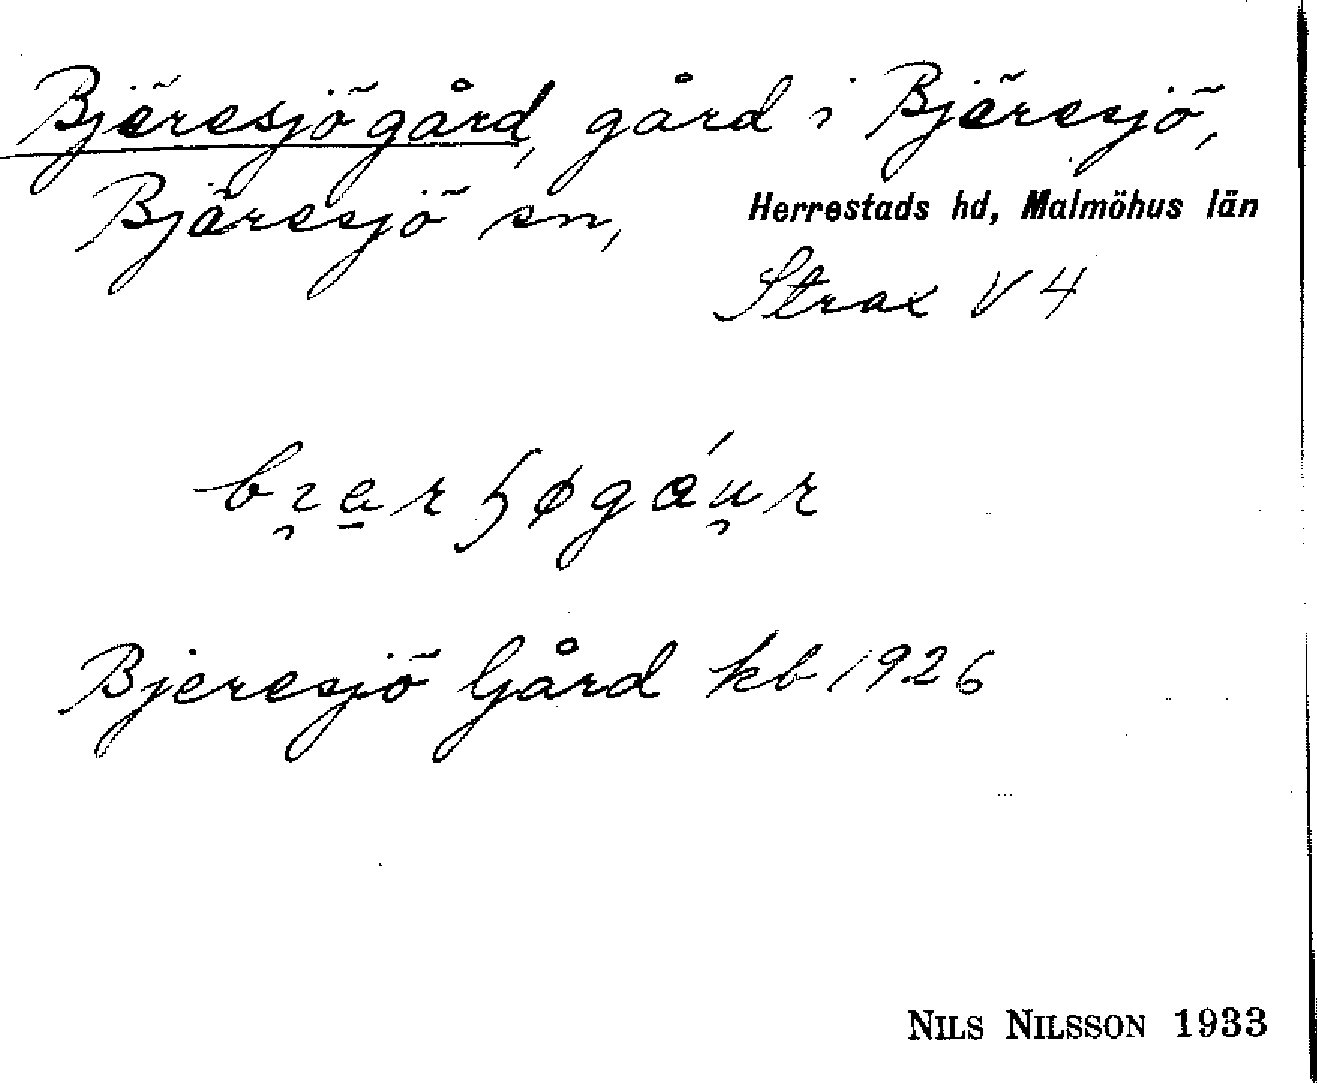 Bjäresjögård, gård i Bjäresjö,
Bjäresjö sn, Herrestads hd, Malmöhus län
Strax V 4
Bjeresjö Gård kb 1926
NILS NILSSON 1933